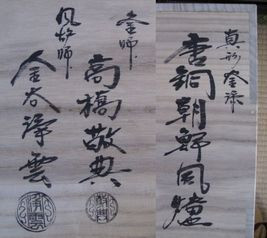 真形釜添
唐銅朝鮮風爐
釜師
高橋敬典
敬典
風炉師
金谷浄雲